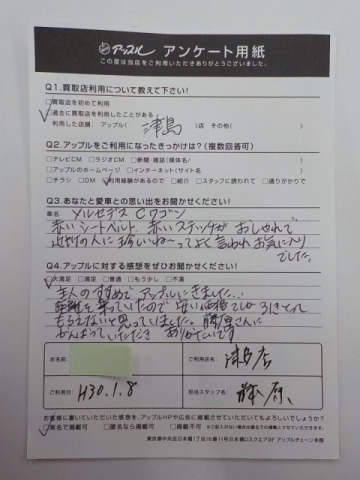 アップル アンケート用紙
この度は当店をご利用いただきありがとうございました。
Q1.買取店利用について教えて下さい!
□買取店を初めて利用
□過去に買取店を利用したことがある
利用した店舗: アップル( 津島 )店 その他( )
Q2.アップルをご利用になったきっかけは?(複数回答可)
□テレビCM □ラジオCM □新聞・雑誌(媒体名/ )
□アップルのホームページ □インターネット(サイト名 )
□チラシ □DM □利用経験があるので □紹介 □スタッフに誘われて □通りがかりで
Q3.あなたと愛車との思い出をお聞かせください!
車名: メルセデス Cワゴン
赤いシートベルト 赤いステッチが おしゃれで
近所の人に 赤いね〜ってよく言われ お気に入り
でした。
Q4.アップルに対する感想をぜひお聞かせください!
□大満足 □満足 □普通 □もう少し □不満
主人のすすめで アップルにきました。
距離を乗っていたので 安い価格でしか 引きとって
もらえないと思っていました。 藤原さんに
がんばっていただき ありがたいです
お名前:
ご利用店名: 津島店
ご利用日: H30.1.8
担当スタッフ名: 藤原
お客様に書いていただいた感想を、アップルHPや広告に掲載させていただいてもよろしいでしょうか?
□実名で掲載可 □匿名なら掲載可 □掲載不可
東京都中央区日本橋1丁目16番11号日本橋ロスクエア9F アップルチェーン本部